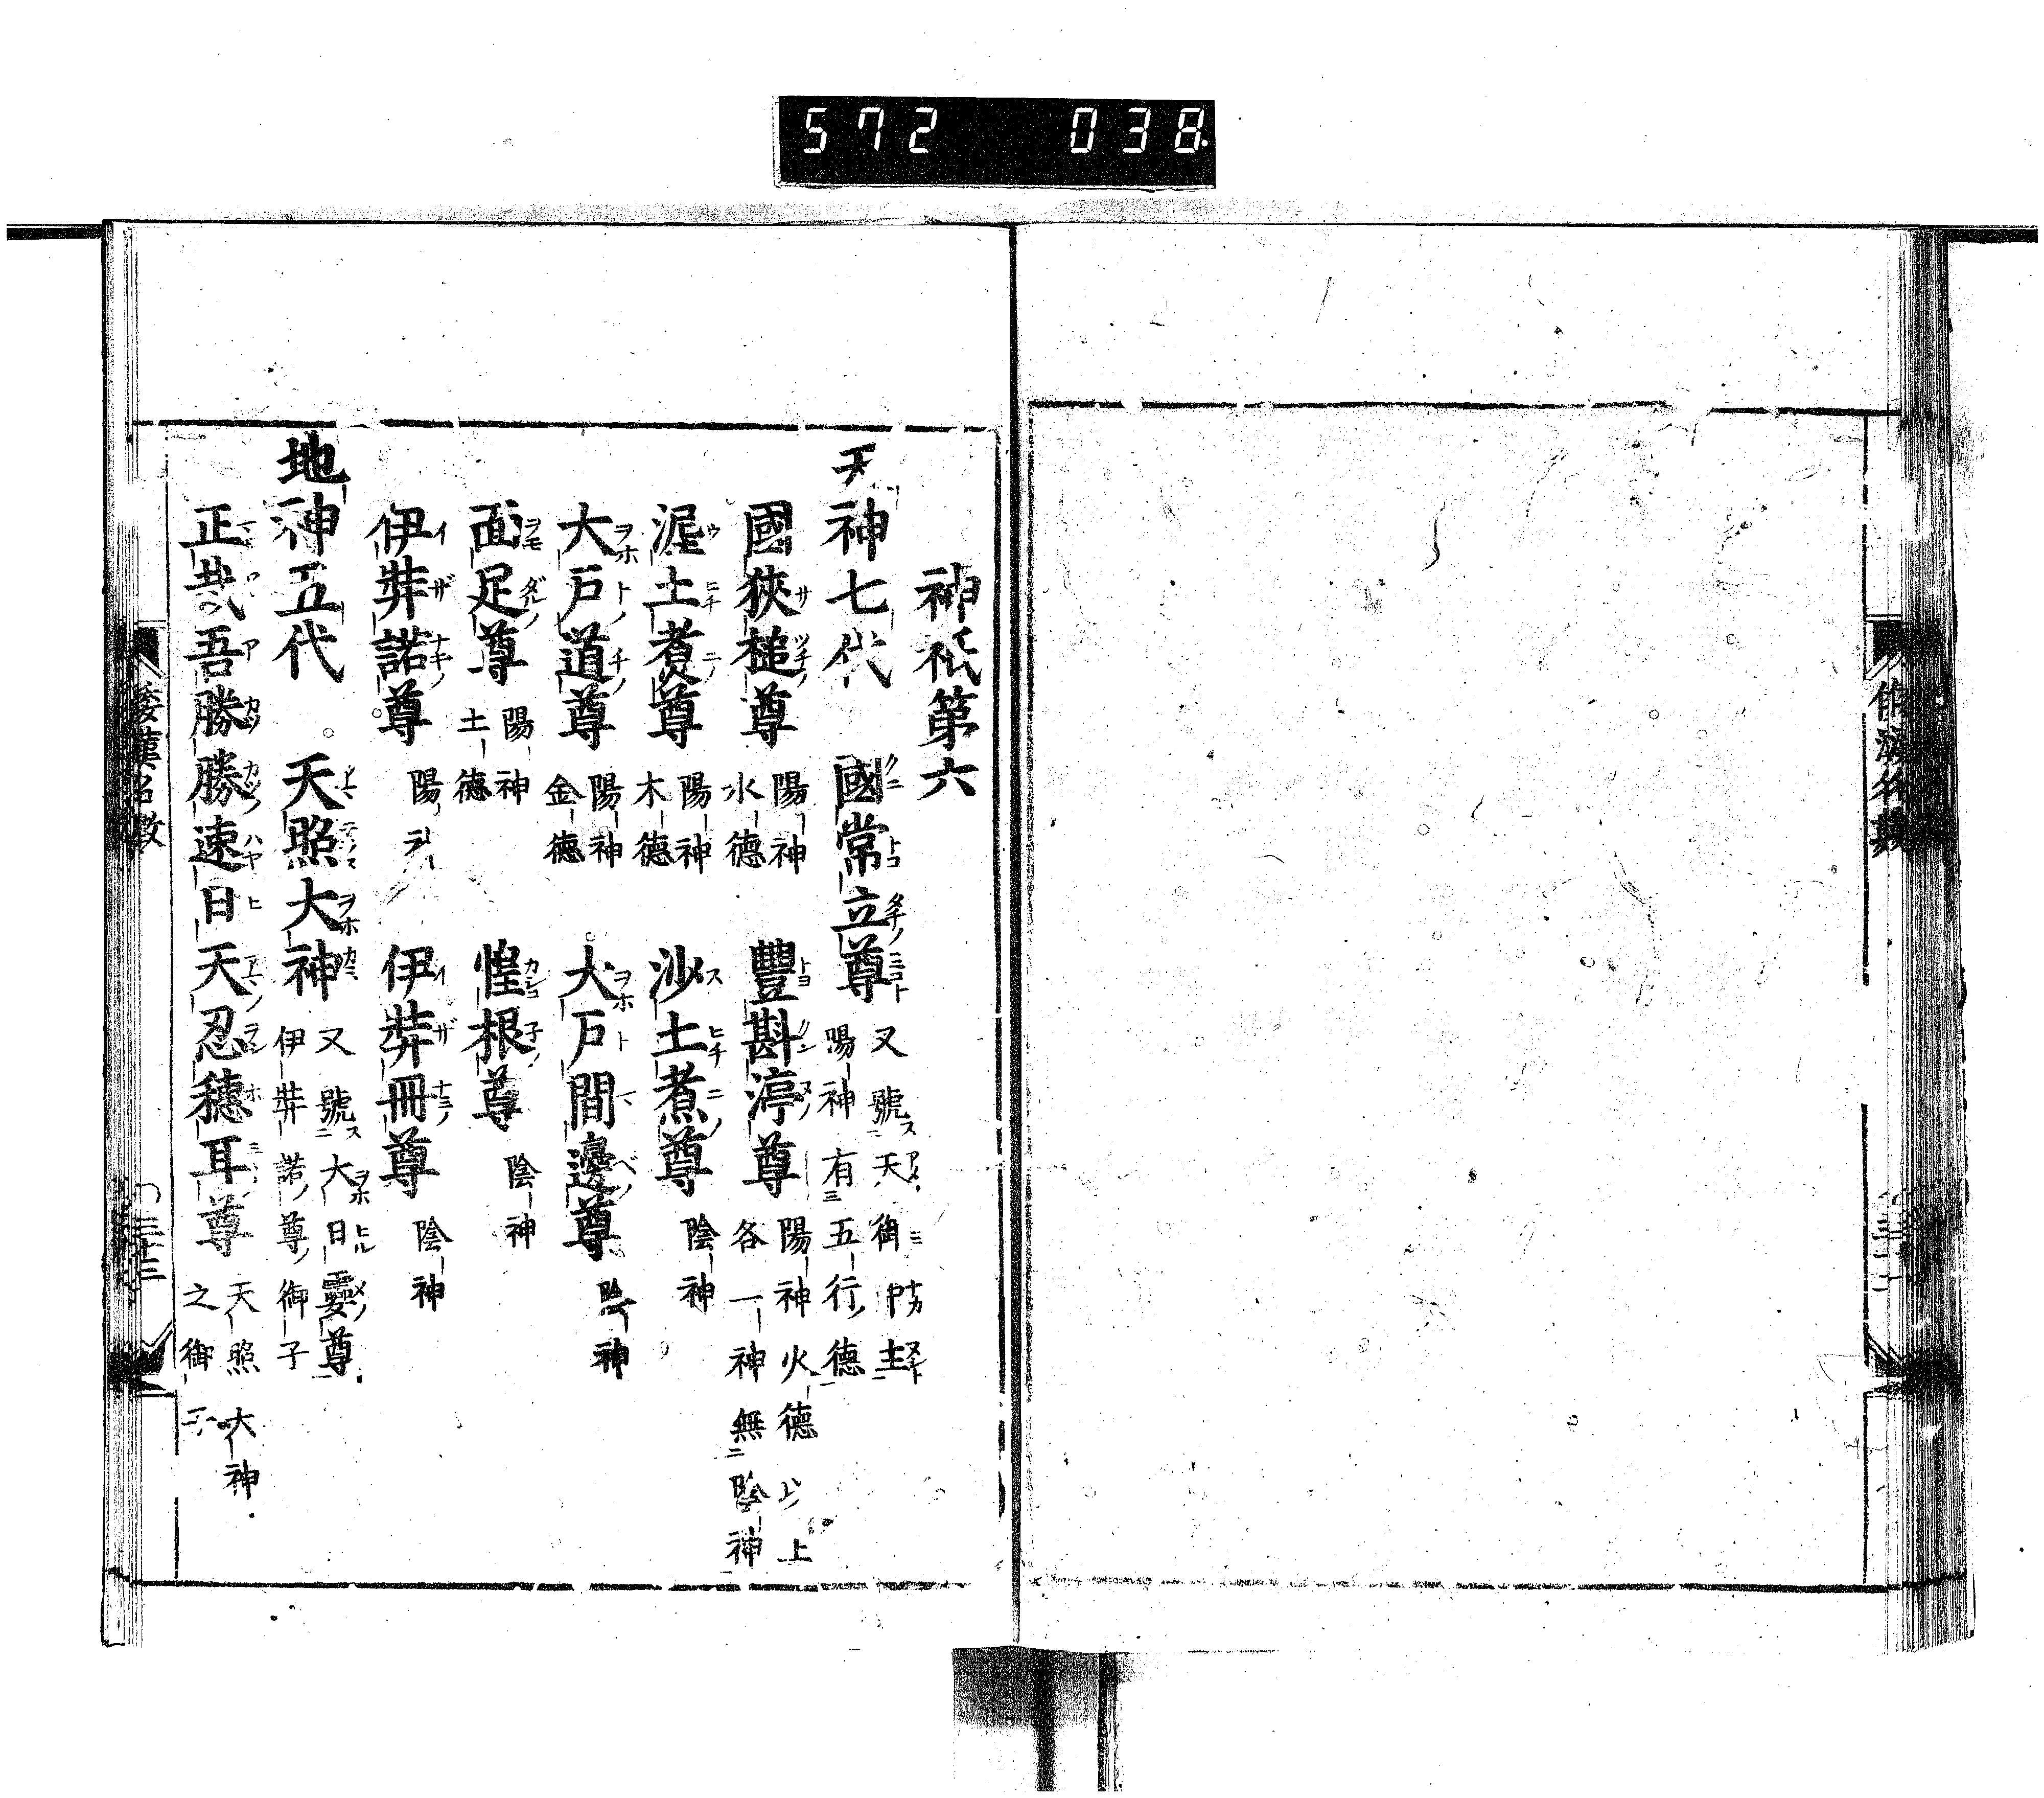 572 038
神祇第六
天神七代 國常立尊 又號天御中主 陽神有五行德
國狹槌尊 陽神水德 豐斟渟尊 陽神火德以上各一神無陰神
渥土煮尊 陽神木德 沙土煮尊 陰神
大戶道尊 陽神金德 大戶間邊尊 陰神
面足尊 陽神土德 惶根尊 陰神
伊弉諾尊 陽神 伊弉冊尊 陰神
地神五代 天照大神 又號大日孁尊 伊弉諾尊御子
正哉吾勝勝速日天忍穗耳尊 天照大神之御子
倭漢名數
三十三